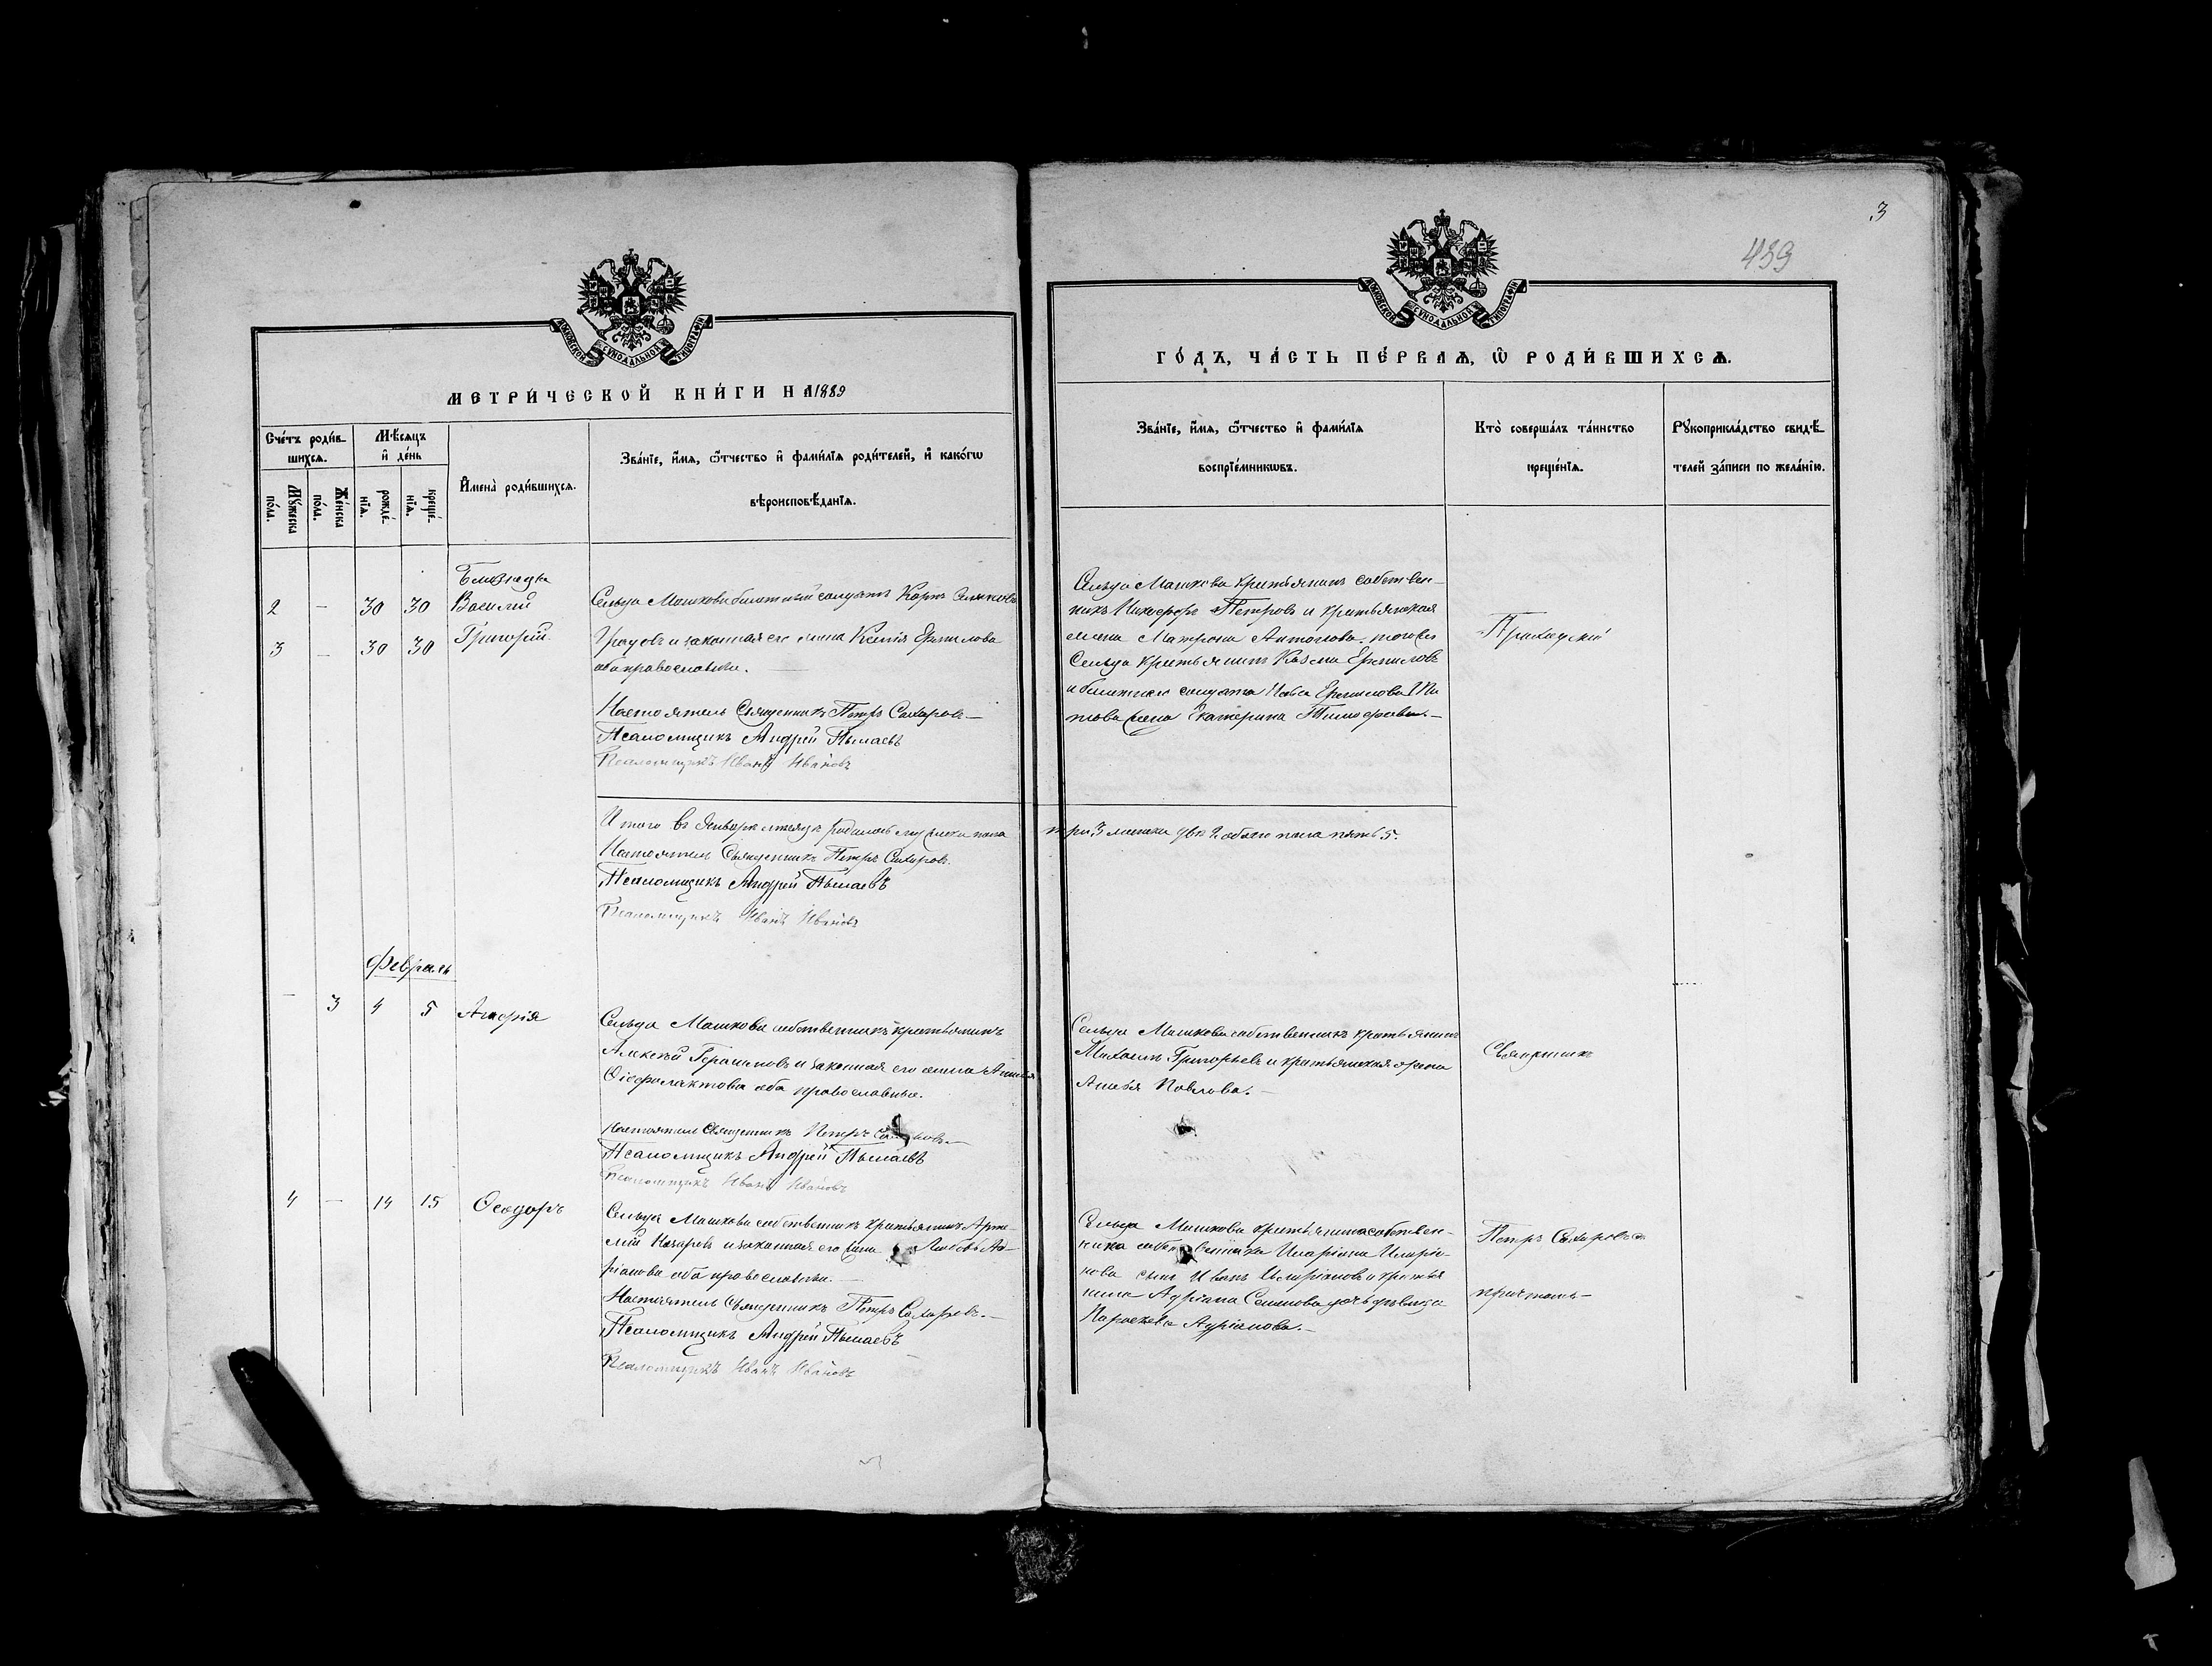 3
439
МОСКОВСКОЙ СѴНОДАЛЬНОЙ ТИПОГРАФІИ
МЕТРИ́ЧЕСКОЙ КНИ́ГИ НА 1889
Сче́тъ роди́в-
шихсѧ.
Мѣ́сѧцъ
и҆ де́нь
И҆мена̀ роди́вшихсѧ.
Зва́нїе, и҆́мѧ, ѻ҆́тчество и҆ фами́лїѧ роди́телей, и҆ како́гѡ
вѣроисповѣ́данїѧ.
Мꙋ́жеска
по́ла.
Же́нска
по́ла.
рожде́-
нїѧ.
креще́-
нїѧ.
Близнецы
2 — 30 30 Василий
3 — 30 30 Григорій
Сельца Машкова билетный солдатъ Карпъ
и законная его жена Ксенія Ермилова
оба православные.
Настоятель Священникъ Петръ Сахаровъ.—
Псаломщикъ Андрей
Псаломщикъ Иванъ Ивановъ
Итого въ Январѣ мѣсяцѣ родилось мужска пола
Настоятель Священникъ Петръ Сахаровъ.
Псаломщикъ Андрей
Псаломщикъ Иванъ Ивановъ
Февраль
— 3 4 5 Агафія
Сельца Машкова собственникъ крестьянинъ
Алексѣй Герасимовъ и законная его жена
Ѳеофилактова оба православные.
Настоятель Священникъ Петръ
Псаломщикъ Андрей
Псаломщикъ Иванъ Ивановъ
4 — 14 15 Ѳеодоръ
Сельца Машкова собственникъ крестьянинъ Арте-
мій Назаровъ и законная его жена Любовь Ад-
ріанова оба православные.—
Настоятель Священникъ Петръ Сахаровъ.—
Псаломщикъ Андрей
Псаломщикъ Иванъ Ивановъ
МОСКОВСКОЙ СѴНОДАЛЬНОЙ ТИПОГРАФІИ
ГО́ДЪ, ЧА́СТЬ ПЕ́РВАѦ, Ѽ РОДИ́ВШИХСѦ.
Зва́нїе, и҆́мѧ, ѻ҆́тчество и҆ фами́лїѧ
воспрїе́мникѡвъ.
Кто̀ соверша́лъ та́инство
креще́нїѧ.
Рꙋкоприкла́дство свидѣ́-
телей за́писи по жела́нїю.
Сельца Машкова крестьянинъ собствен-
никъ Никифоръ Петровъ и крестьянская
жена Матрона Антонова. того же
Сельца крестьянинъ Козма Ермиловъ
и билетнаго солдата Ермилова
жена Екатерина Тимофеева.—
Приходскій
три 3 женска двѣ 2 обоего пола пять 5.
Сельца Машкова собственникъ крестьянинъ
Михаилъ Григорьевъ и крестьянская жена
Павлова.—
Священникъ
Сельца Машкова крестьянина собствен-
ника Иларіона Иларіо-
нова сынъ Иванъ Иларіоновъ и крестья
нина Адріана Семенова дочь дѣвица
Параскева Адріанова.—
Петръ Сахаровъ съ
причтомъ—